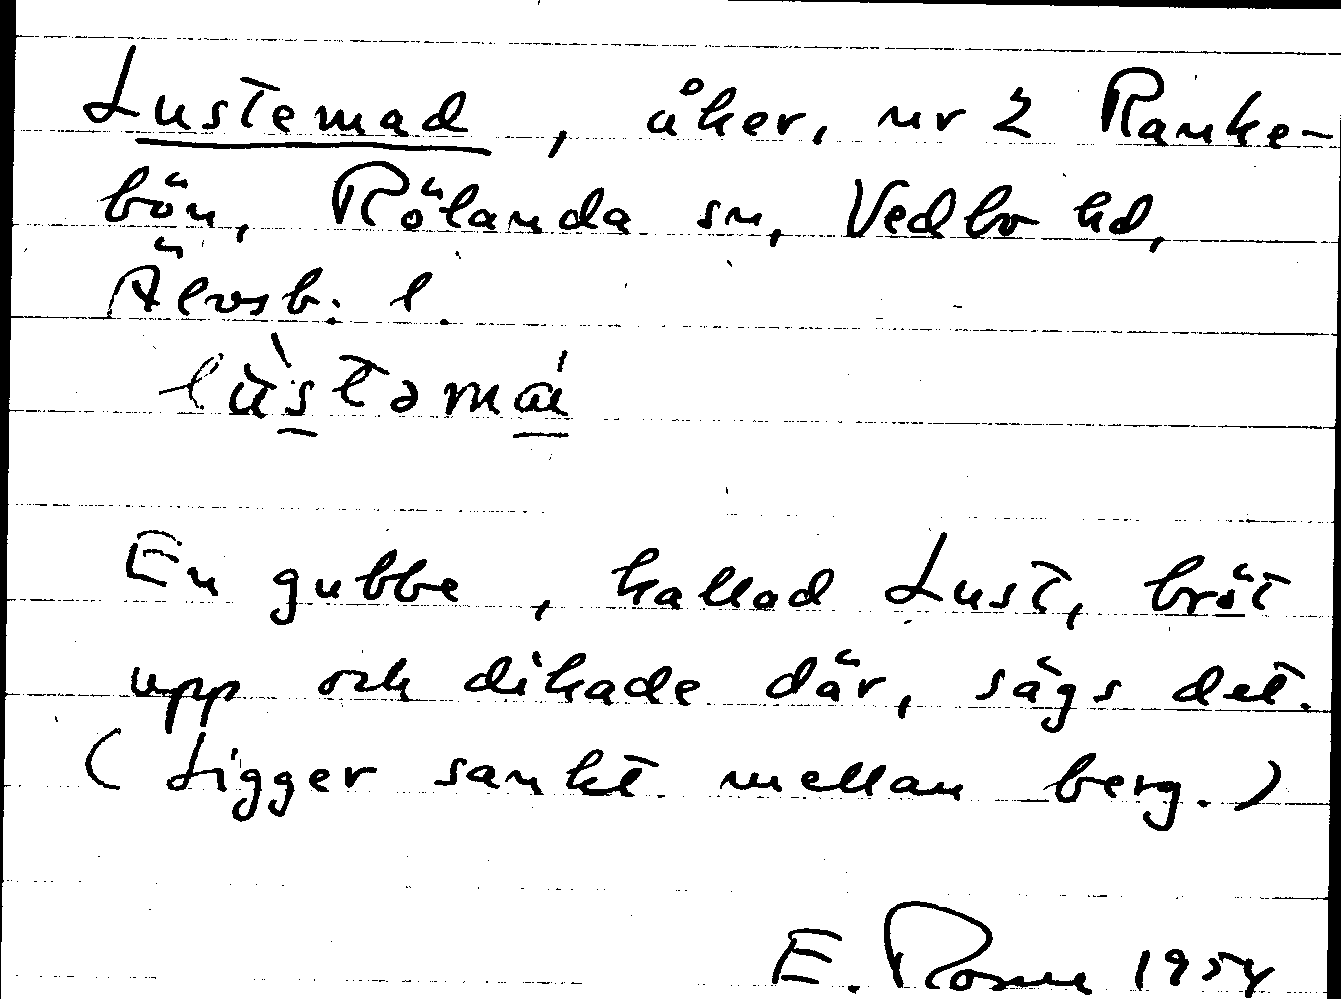 Lustemad, åker, nr 2 Ranke-
bön, Rölanda sn, Vedbo hd,
Älvsb. l.
En gubbe, kallad Lust, bröt
upp och dikade där, sägs det.
(Ligger sankt mellan berg.)
E. 1954